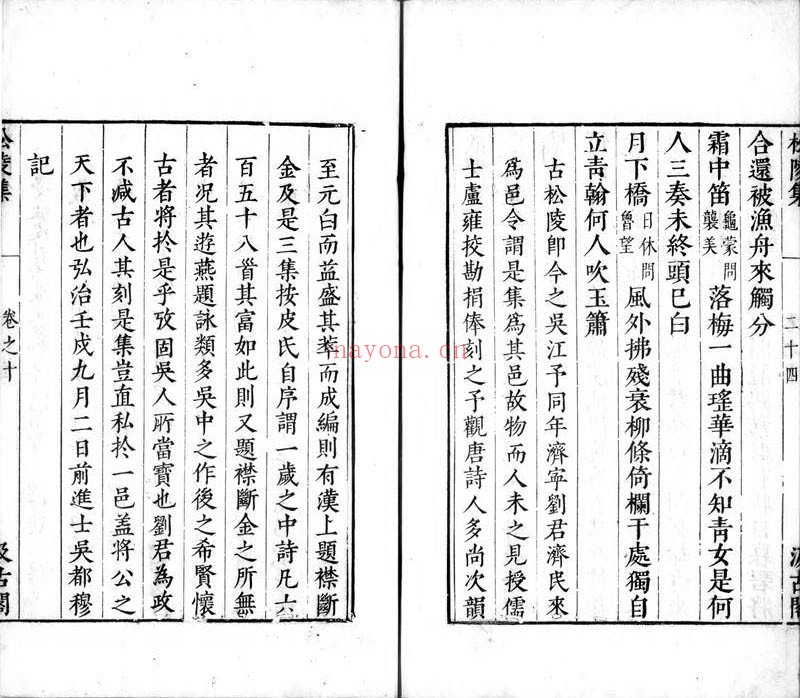 松陵集
三十四
汲古閣
合還被漁舟來觸分
霜中笛 龜蒙問 襲美 落梅一曲瑤華滴不知青女是何
人三奏未終頭已白
月下橋 日休問 魯望 風外拂殘衰柳條倚欄干處獨自
立青翰何人吹玉簫
古松陵卽今之吳江予同年濟寧劉君濟民來
爲邑令謂是集爲其邑故物而人未之見授儒
士盧雍挍勘捐俸刻之予觀唐詩人多尚次韻
至元白而益盛其萃而成編則有漢上題襟斷
金及是三集按皮氏自序謂一歲之中詩凡六
百五十八首其富如此則又題襟斷金之所無
者况其遊燕題詠類多吳中之作後之希賢懷
古者將於是乎攷固吳人所當寶也劉君為政
不减古人其刻是集豈直私於一邑盖將公之
天下者也弘治壬戌九月二日前進士吳都穆
記
松陵集
卷之十
汲古閣
nayona.cn